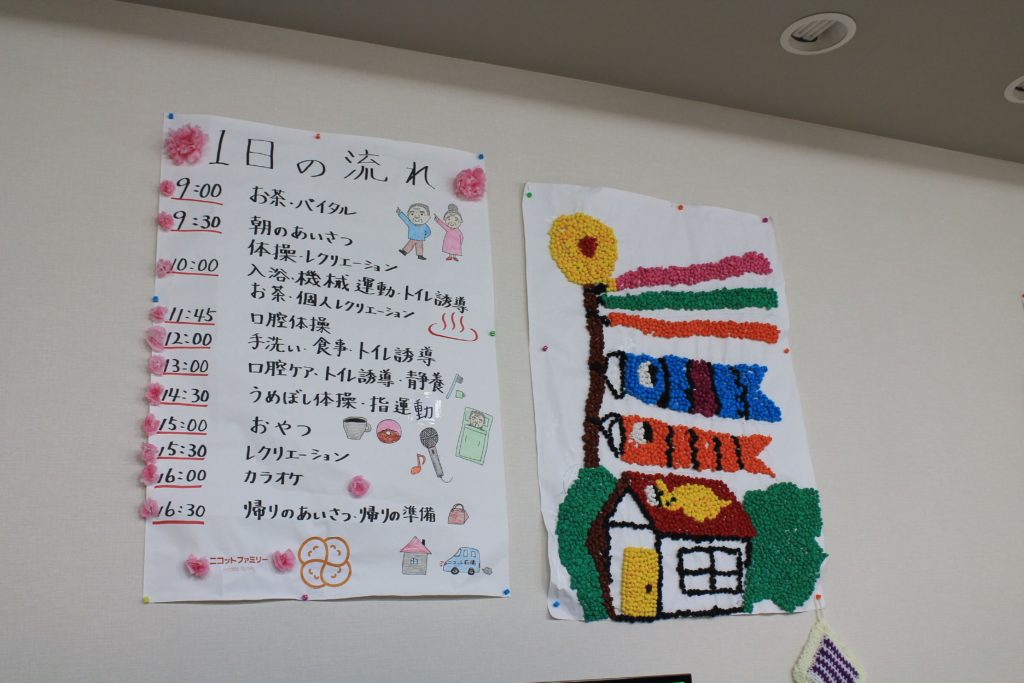 1日の流れ
9:00 お茶・バイタル
9:30 朝のあいさつ
体操・レクリエーション
10:00 入浴・機械運動・トイレ誘導
お茶・個人レクリエーション
11:45 口腔体操
12:00 手洗い・食事・トイレ誘導
13:00 口腔ケア・トイレ誘導・静養
14:30 うめぼし体操・指運動
15:00 おやつ
15:30 レクリエーション
16:00 カラオケ
16:30 帰りのあいさつ・帰りの準備
ニコットファミリー